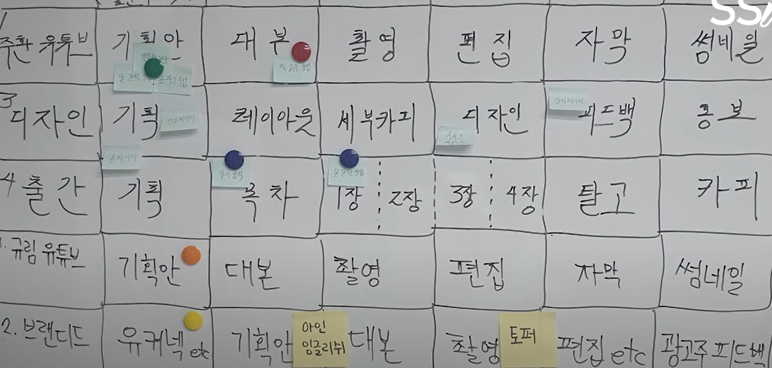 주환 유튜브 기획안 대본 촬영 편집 자막 썸네일
3 디자인 기획 레이아웃 세부카피 디자인 피드백 홍보
4 출간 기획 목차 1장 2장 3장 4장 탈고 카피
1. 규림 유튜브 기획안 대본 촬영 편집 자막 썸네일
2. 브랜디드 유커넥 etc 기획안 아인 대본 촬영 토퍼 편집 etc 광고주 피드백
잉글리쉬